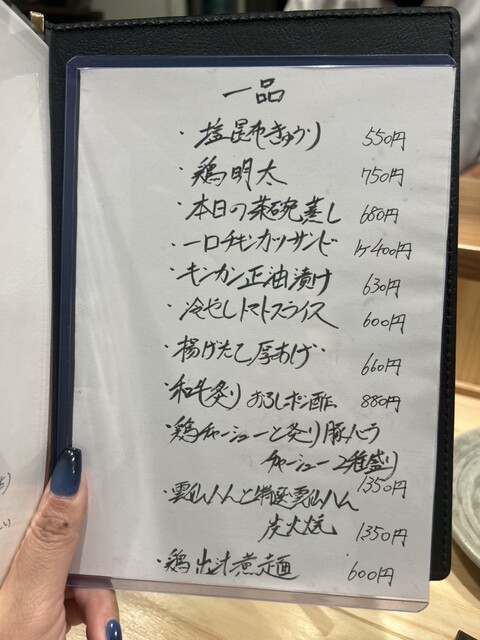 一品
・塩昆布きゅうり 550円
・鶏明太 750円
・本日の茶碗蒸し 680円
・一口チキンカツサンド 1ヶ400円
・キンカン正油漬け 630円
・冷やしトマトスライス 600円
・揚げたて厚あげ 660円
・和牛炙り おろしポン酢 880円
・鶏チャーシューと炙り豚バラ
チャーシュー2種盛り
1350円
・雲仙ハムと特選雲仙ハム
炭火炙 1350円
・鶏出汁煮麺 600円